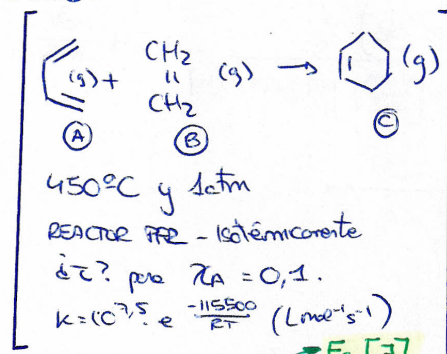 (g) + CH2 = CH2 (g) → (g)
A B C
450ºC y 1atm
REACTOR PFR - Isotérmicamente
¿τ? para XA = 0,1.
K = 10^7,5 · e^(-115500/RT) (Lmol⁻¹s⁻¹)